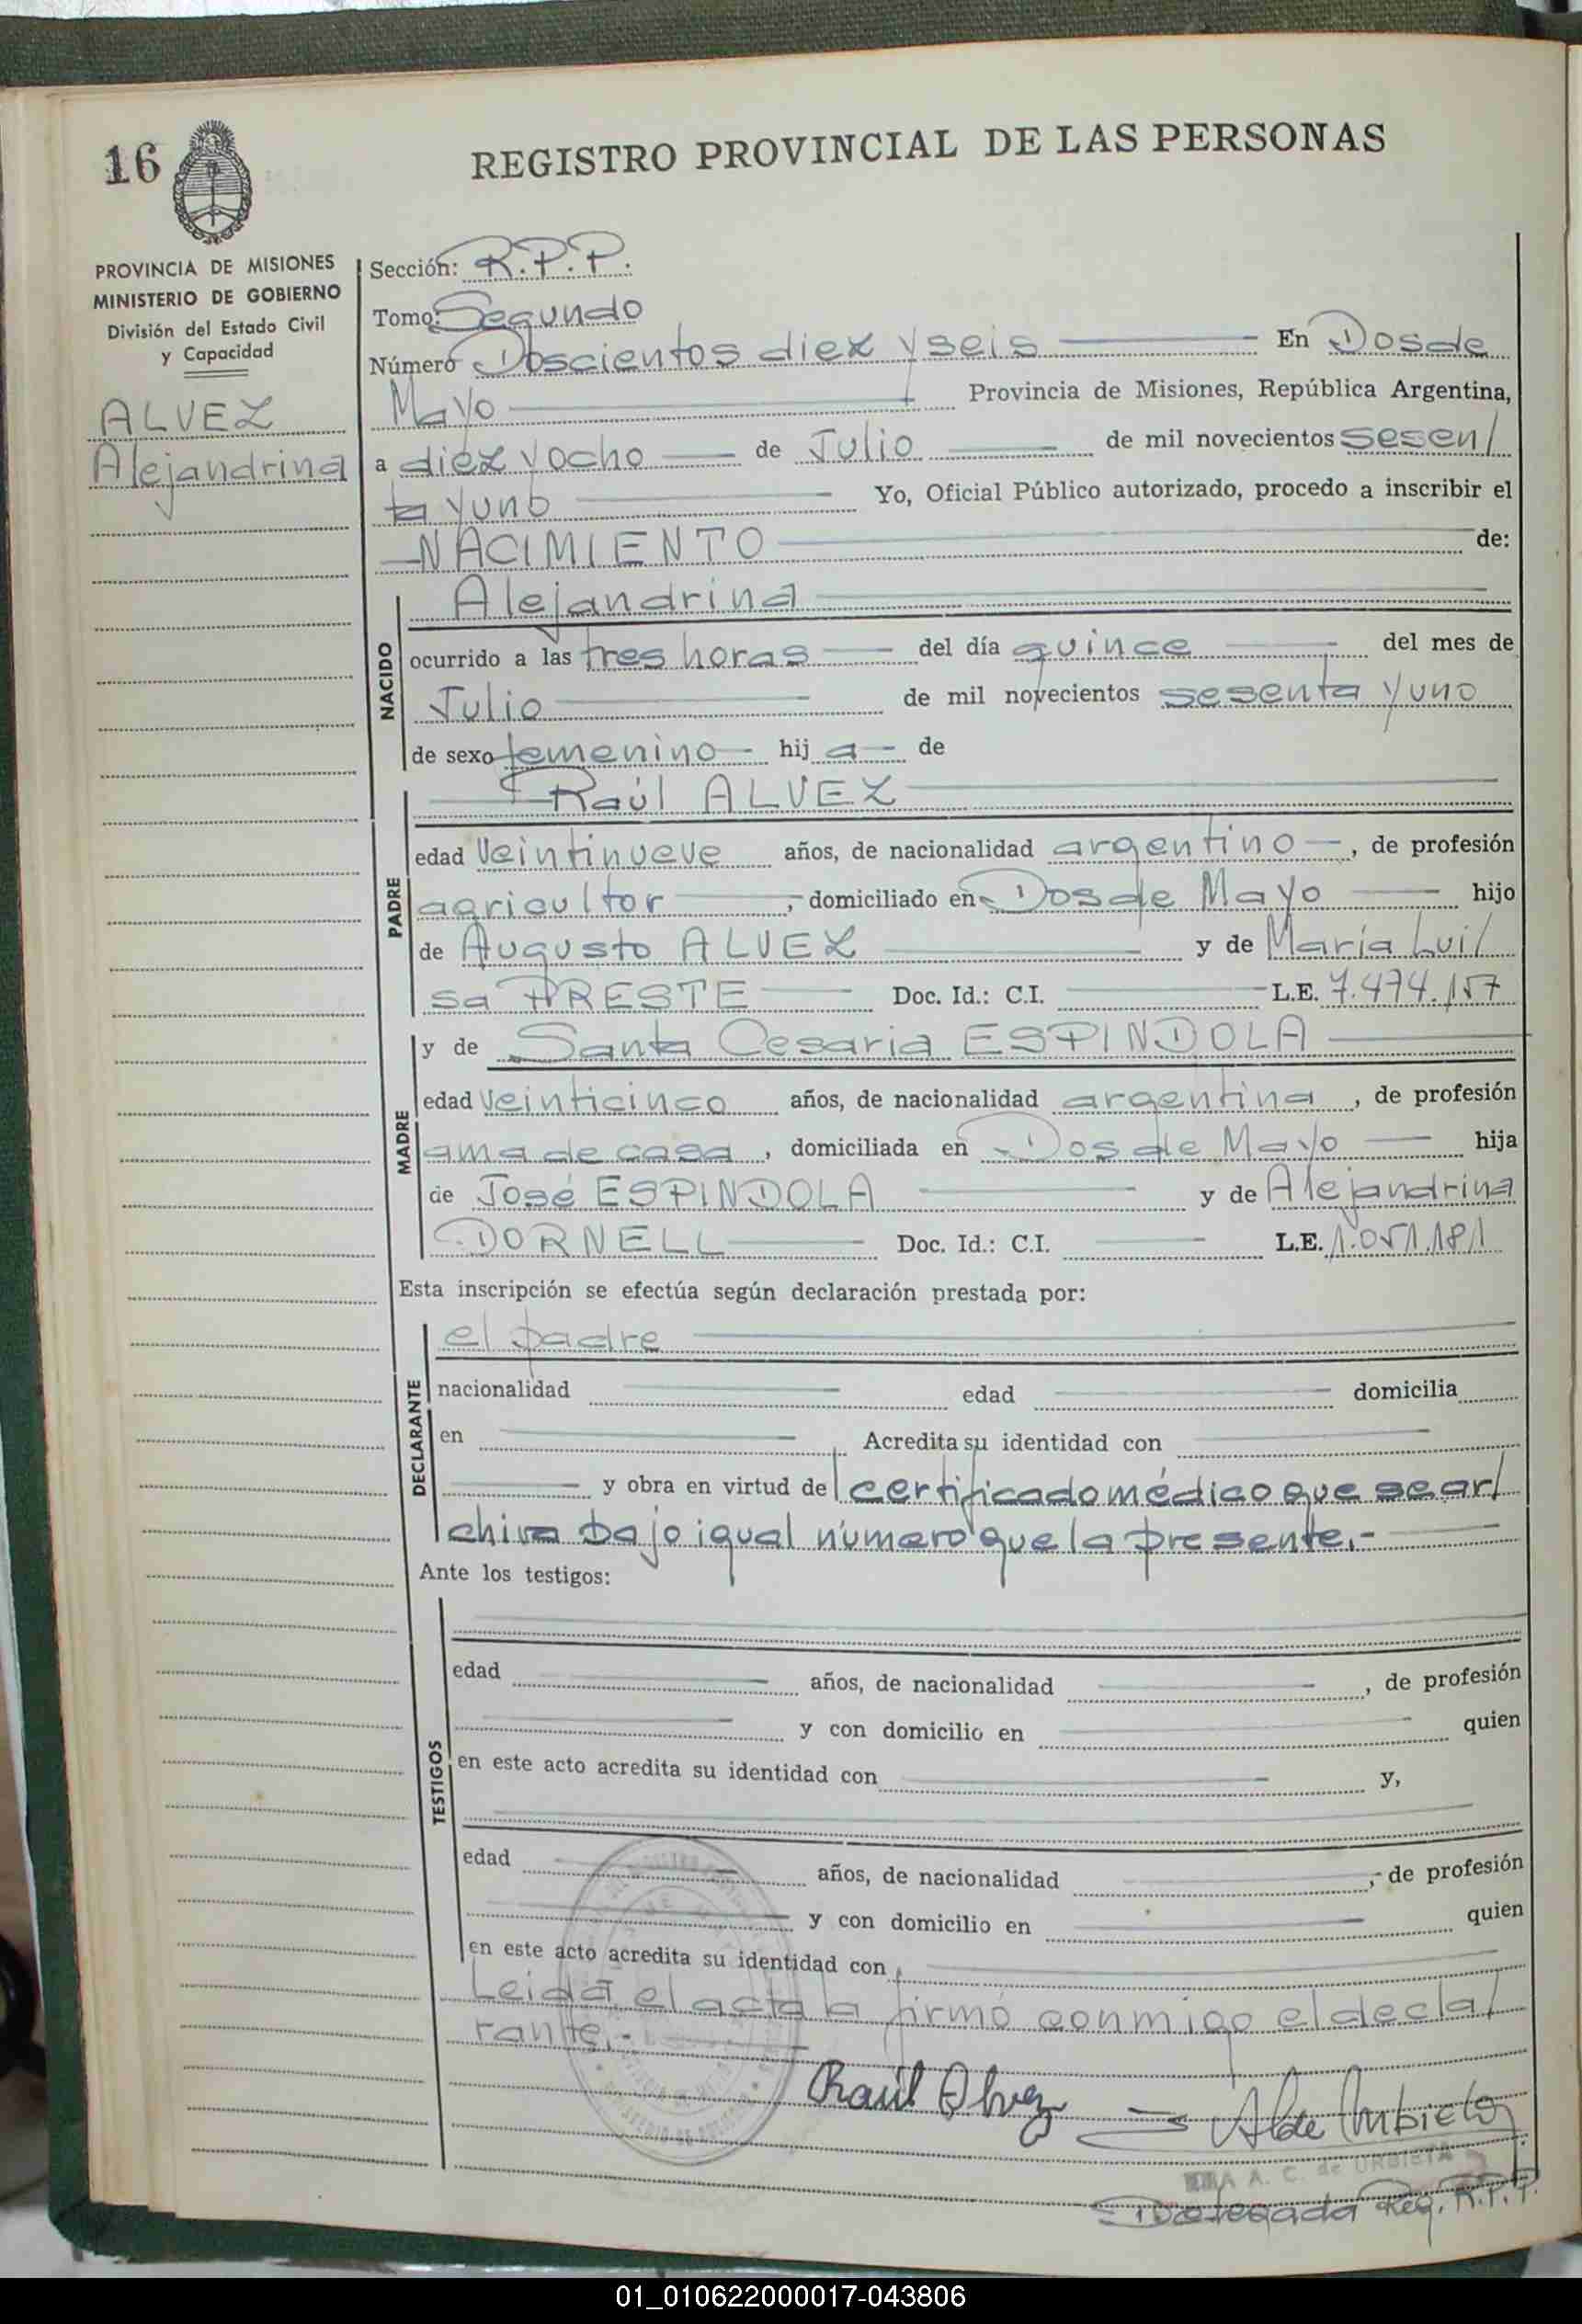 16
REGISTRO PROVINCIAL DE LAS PERSONAS
PROVINCIA DE MISIONES
MINISTERIO DE GOBIERNO
División del Estado Civil
y Capacidad
ALVEZ
Alejandrina
Sección: R.P.P.
Tomo: Segundo
Número Doscientos diez y seis En Dos de
Mayo Provincia de Misiones, República Argentina,
a diez y ocho de Julio de mil novecientos sesen/
ta y uno Yo, Oficial Público autorizado, procedo a inscribir el
NACIMIENTO de:
NACIDO
Alejandrina
ocurrido a las tres horas del día quince del mes de
Julio de mil novecientos sesenta y uno
de sexo femenino hij a de
PADRE
Raúl ALVEZ
edad veintinueve años, de nacionalidad argentino, de profesión
agricultor, domiciliado en Dos de Mayo hijo
de Augusto ALVEZ y de María Lui/
sa PRESTE Doc. Id.: C.I. L.E. 7.474.157
MADRE
y de Santa Cesaria ESPINDOLA
edad veinticinco años, de nacionalidad argentina, de profesión
ama de casa, domiciliada en Dos de Mayo hija
de José ESPINDOLA y de Alejandrina
DORNELL Doc. Id.: C.I. L.E. 1.051.181
Esta inscripción se efectúa según declaración prestada por:
DECLARANTE
el padre
nacionalidad edad domicilia
en Acredita su identidad con
y obra en virtud de certificado médico que se ar/
chiva bajo igual número que la presente.-
Ante los testigos:
TESTIGOS
edad años, de nacionalidad , de profesión
y con domicilio en quien
en este acto acredita su identidad con y,
edad años, de nacionalidad , de profesión
y con domicilio en quien
en este acto acredita su identidad con
Leida el acta la firmó conmigo el decla/
rante.-
Raúl Alvez
A. C. de URBIETA
Delegada Reg. R.P.P.
01_010622000017-043806